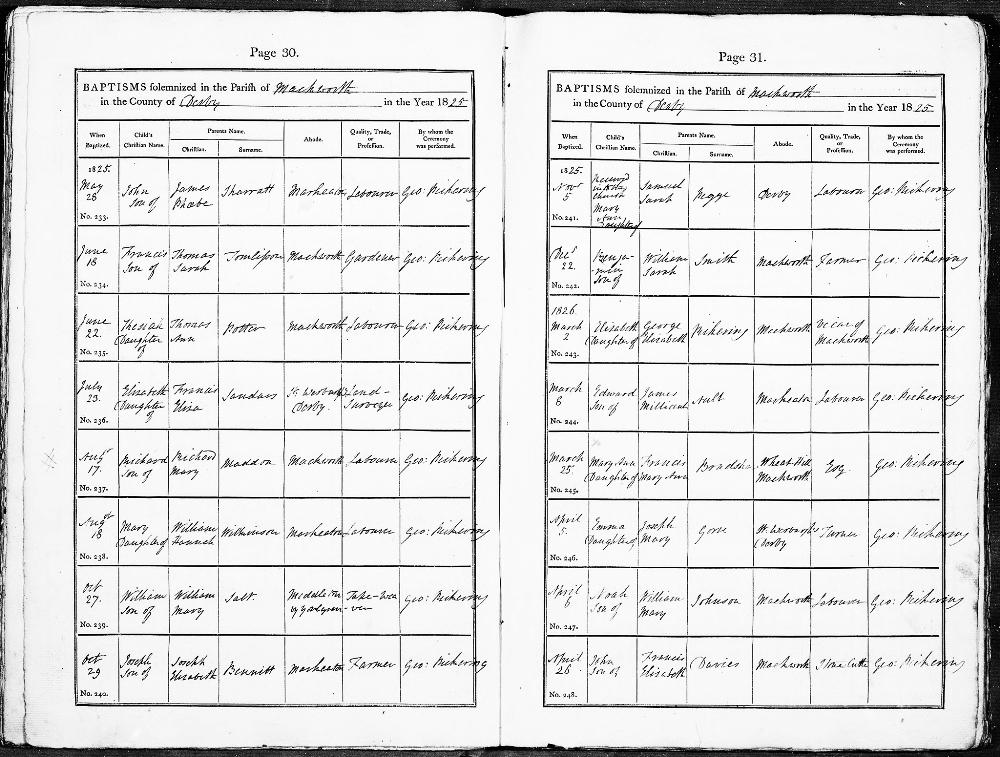 Page 30.
BAPTISMS solemnized in the Parish of Mackworth
in the County of Derby in the Year 1825
When Baptized. Child's Christian Name. Parents Name. Christian. Surname. Abode. Quality, Trade, or Profession. By whom the Ceremony was performed.
1825.
May 28 No. 233. John Son of James Phœbe Sharratt Markeaton Labourer Geo: Pickering
June 18 No. 234. Francis Son of Thomas Sarah Tomlinson Mackworth Gardener Geo: Pickering
June 22. No. 235. Daughter of Thomas Ann Potter Mackworth Labourer Geo: Pickering
July 23. No. 236. Elizabeth Daughter of Francis Eliza Sandars St. Werburghs Derby. Land-Surveyor Geo: Pickering
Augst 17. No. 237. Richard Son of Richard Mary Maddon Mackworth Labourer Geo: Pickering
Augst 18 No. 238. Mary Daughter of William Hannah Wilkinson Markeaton Labourer Geo: Pickering
Oct 27. No. 239. William Son of William Mary Salt. Middleton by Tape-Weaver Geo: Pickering
Oct 29 No. 240. Joseph Son of Joseph Elisabeth Bennitt Markeaton Farmer Geo: Pickering
Page 31.
BAPTISMS solemnized in the Parish of Mackworth
in the County of Derby in the Year 1825.
When Baptized. Child's Christian Name. Parents Name. Christian. Surname. Abode. Quality, Trade, or Profession. By whom the Ceremony was performed.
1825.
Novr 5 No. 241. Received into the church Mary Ann Daughter of Samuel Sarah Pegge Derby Labourer Geo: Pickering
Decr 22. No. 242. Benjamin Son of William Sarah Smith Mackworth Farmer Geo: Pickering
1826.
March 2 No. 243. Elizabeth Daughter of George Elizabeth Pickering Mackworth Vicar of Mackworth Geo: Pickering
March 6 No. 244. Edward Son of James Millicent Ault Markeaton Labourer Geo: Pickering
March 25 No. 245. Mary Ann Daughter of Francis Mary Ann Bradshaw Mackworth Esq. Geo: Pickering
April 5. No. 246. Emma Daughter of Joseph Mary St. Werburghs Derby Turner Geo: Pickering
April 6 No. 247. Noah Son of William Mary Johnson Mackworth Labourer Geo: Pickering
April 28 No. 248. John Son of Francis Elizabeth Davies Mackworth Geo: Pickering